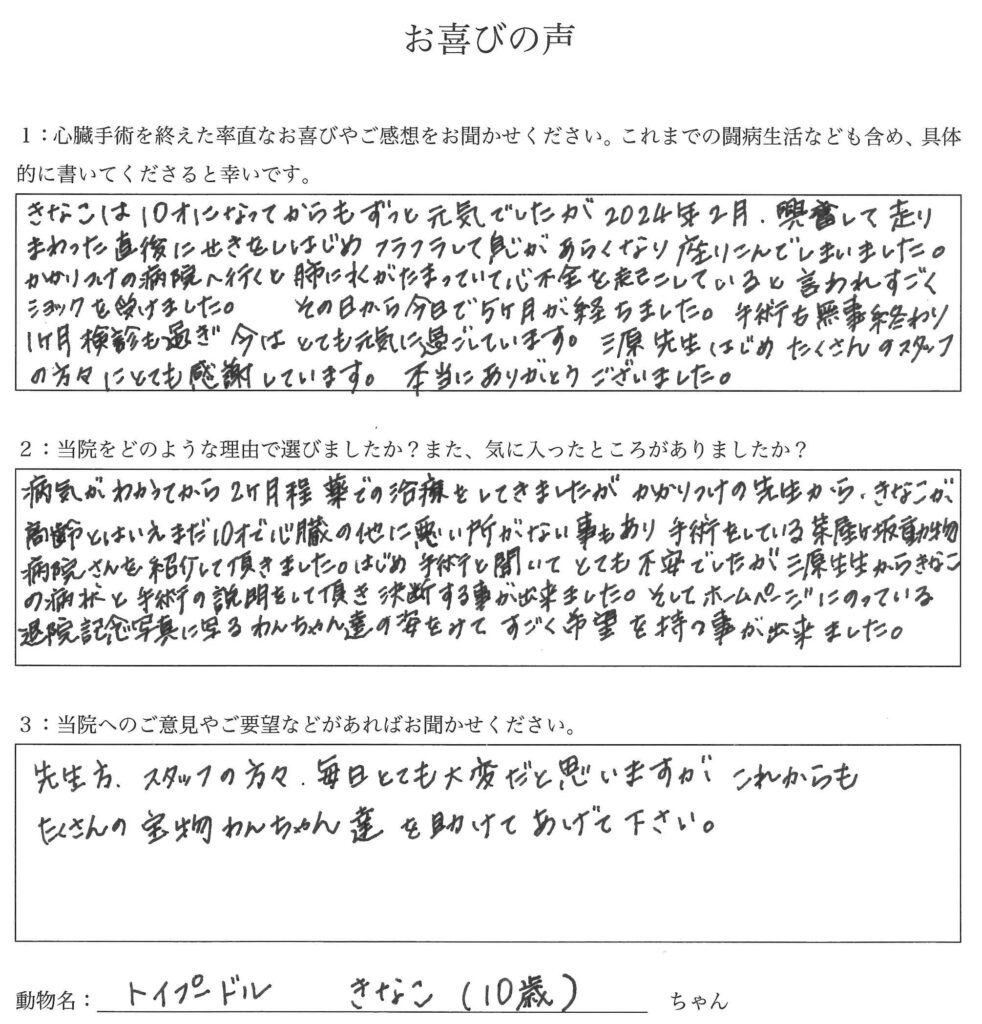 お喜びの声
1：心臓手術を終えた率直なお喜びやご感想をお聞かせください。これまでの闘病生活なども含め、具体
的に書いてくださると幸いです。
きなこは10才になってからもずっと元気でしたが2024年2月、興奮して走り
まわった直後にせきをしはじめフラフラして息があらくなり座りこんでしまいました。
かかりつけの病院へ行くと肺に水がたまっていて心不全を起こしていると言われすごく
ショックを受けました。 その日から今日で5ヶ月が経ちました。手術も無事終わり
1ヶ月検診も過ぎ今はとても元気に過ごしています。三原先生はじめたくさんのスタッフ
の方々にとても感謝しています。本当にありがとうございました。
2：当院をどのような理由で選びましたか？また、気に入ったところがありましたか？
病気がわかってから2ヶ月程薬での治療をしてきましたがかかりつけの先生から、きなこが
高齢とはいえまだ10才で心臓の他に悪い所がない事もあり手術をしている茶屋ヶ坂動物
病院さんを紹介して頂きました。はじめ手術と聞いてとても不安でしたが三原生生からきなこ
の病状と手術の説明をして頂き決断する事が出来ました。そしてホームページにのっている
退院記念写真に写るわんちゃん達の姿をみてすごく希望を持つ事が出来ました。
3：当院へのご意見やご要望などがあればお聞かせください。
先生方、スタッフの方々、毎日とても大変だと思いますがこれからも
たくさんの宝物わんちゃん達を助けてあげて下さい。
動物名：トイプードル きなこ（10歳） ちゃん